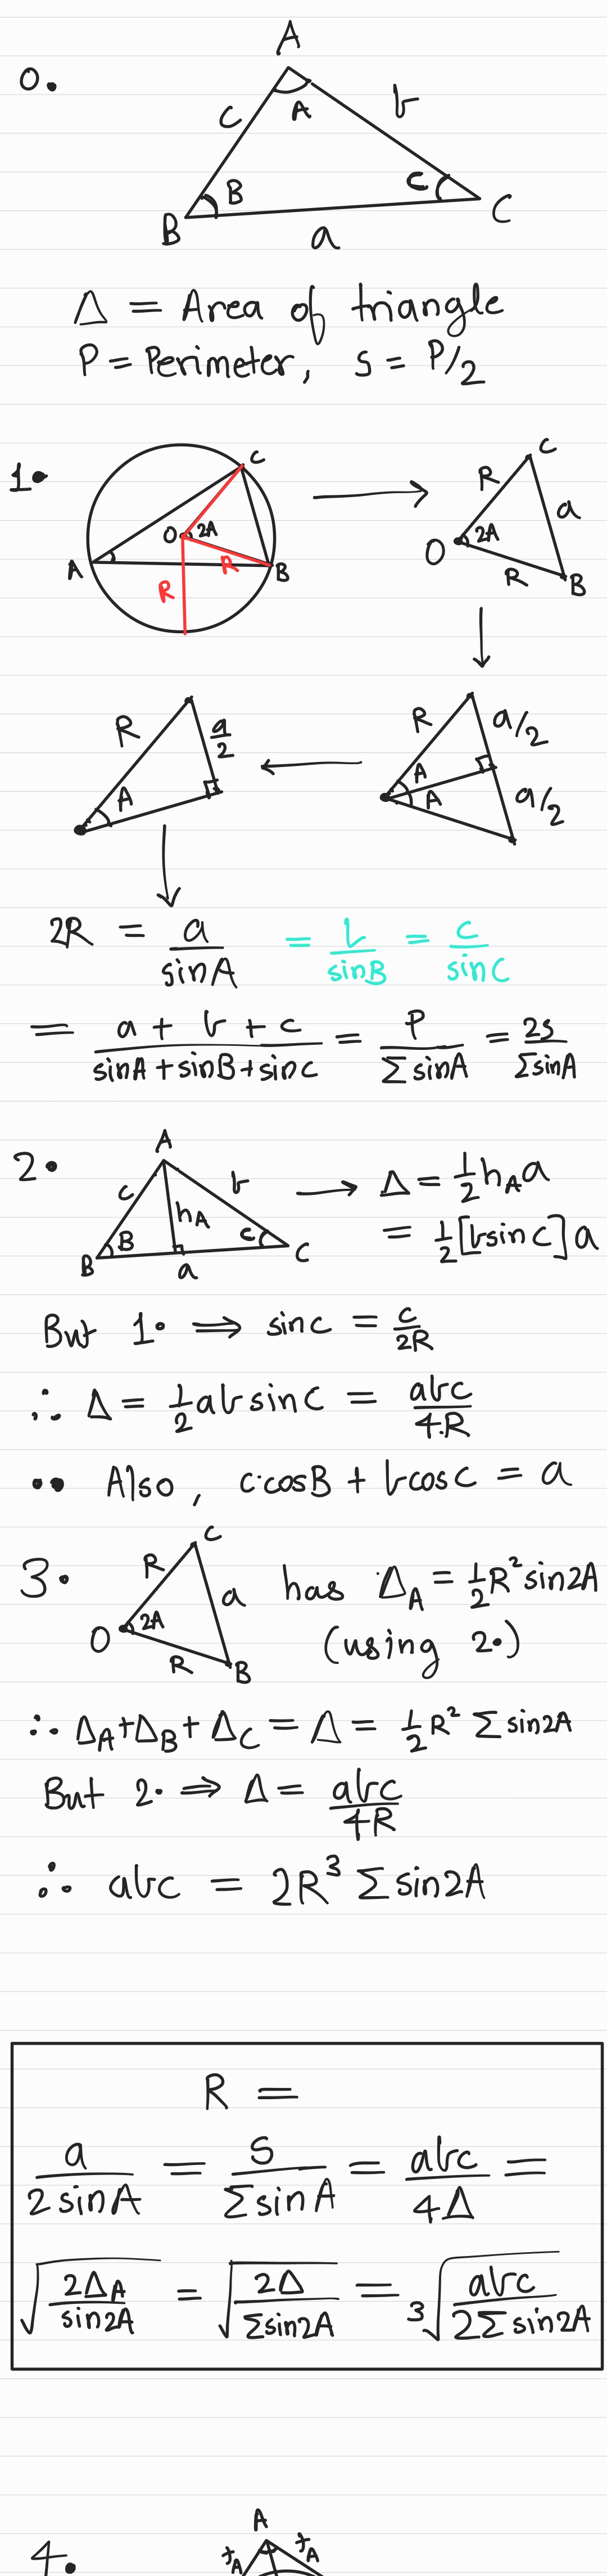 0.
A
c
A
b
B
C
B
C
a
Δ = Area of triangle
P = Perimeter, s = P/2
1.
C
O
2A
A
R
B
R
C
R
a
O
2A
R
B
R
a/2
A
R
a/2
A
A
a/2
2R = a/sinA = b/sinB = c/sinC
= (a + b + c)/(sinA + sinB + sinC) = P/(Σ sinA) = 2s/(ΣsinA)
2.
A
c
b
h_A
B
C
B
C
a
→ Δ = 1/2 h_A a
= 1/2 [bsinC] a
But 1. ⇒ sinC = c/2R
∴ Δ = 1/2 ab sinC = abc/4.R
.. Also, c·cosB + bcosC = a
3.
C
R
a
O
2A
R
B
has Δ_A = 1/2 R² sin2A
(using 2.)
∴ Δ_A + Δ_B + Δ_C = Δ = 1/2 R² Σ sin2A
But 2. ⇒ Δ = abc/4R
∴ abc = 2R³ Σ sin2A
R =
a/(2 sinA) = S/(Σ sinA) = abc/4Δ =
√(2Δ_A/sin2A) = √(2Δ/Σsin2A) = ³√(abc/(2Σ sin2A))
4.
A
t_A
t_A